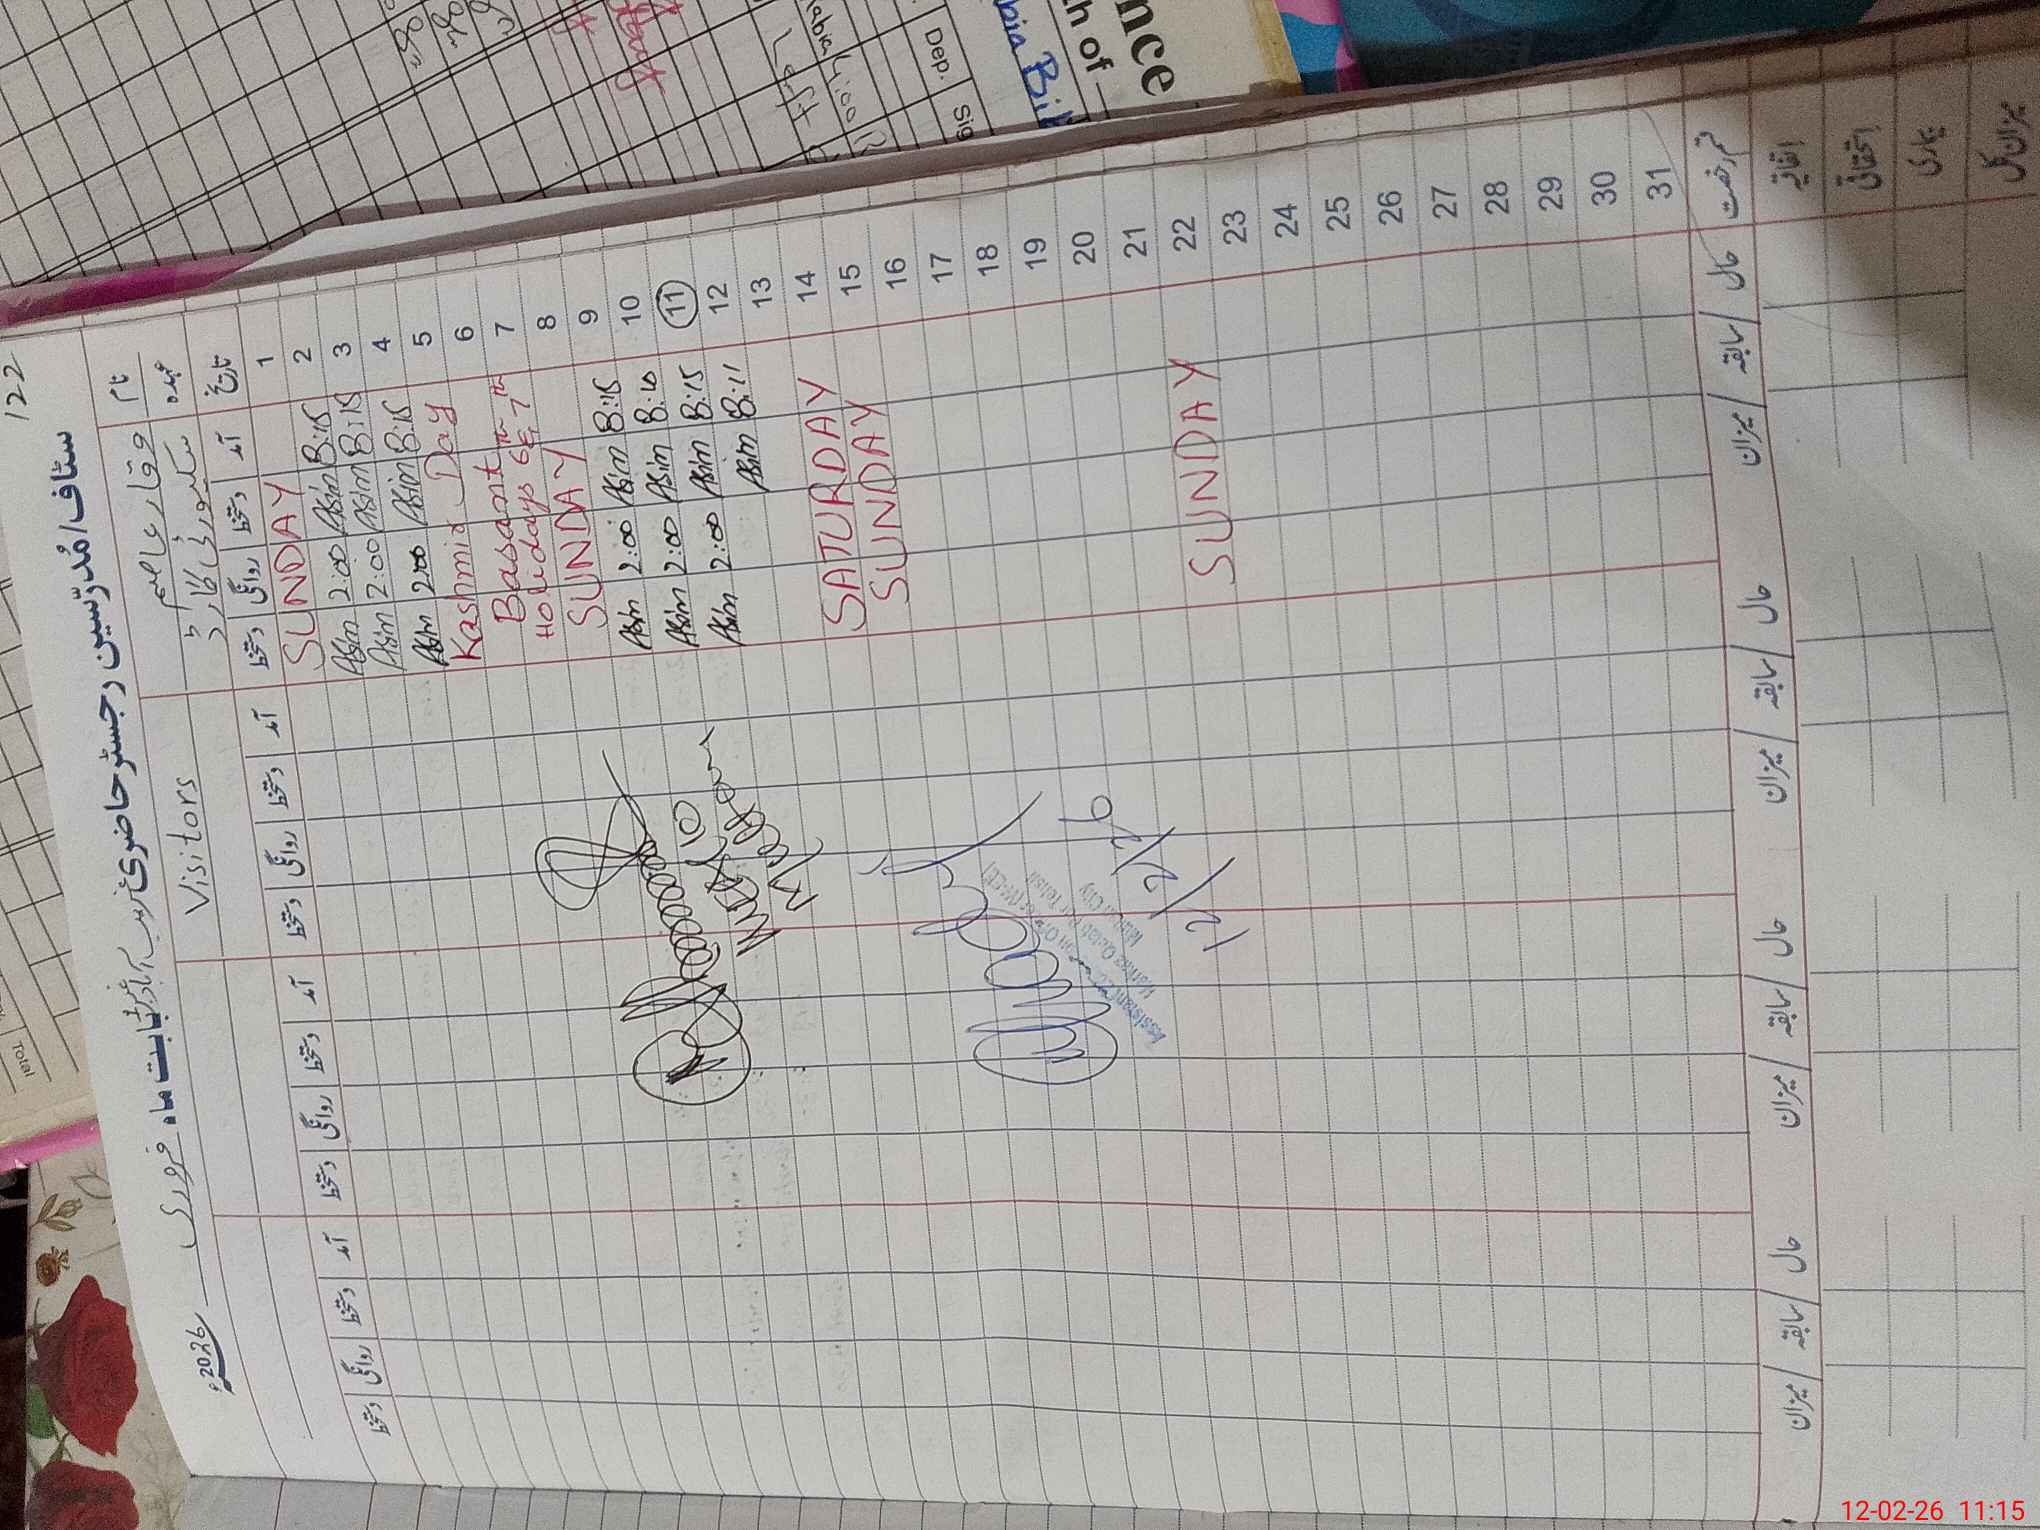 122
سٹاف/مُدرّسین رجسٹر حاضری
بابت ماہ فروری 2026ء
نام وقار عاصم
عہدہ سکیورٹی گارڈ
Visitors
تاریخ آمد دستخط روانگی دستخط آمد دستخط روانگی دستخط آمد دستخط روانگی دستخط آمد دستخط روانگی دستخط
1 SUNDAY
2 8:15 Asim 2:00 Asim
3 8:15 Asim 2:00 Asim
4 8:15 Asim 2:00 Asim
5 Kashmir Day
6 Basant
7 Holidays 6th, 7th
8 SUNDAY
9 8:15 Asim 2:00 Asim
10 8:10 Asim 2:00 Asim
11 8:15 Asim 2:00 Asim
12 8:11 Asim
13
14 SATURDAY
15 SUNDAY
16
17
18
19
20
21
22 SUNDAY
23
24
25
26
27
28
29
30
31
12/2/26
قسم رخصت حال سابقہ میزان حال سابقہ میزان حال سابقہ میزان حال سابقہ میزان
اتفاقیہ
استحقاقی
بیماری
میزان کل
Total
Left
Dep.
Sig
12-02-26 11:15